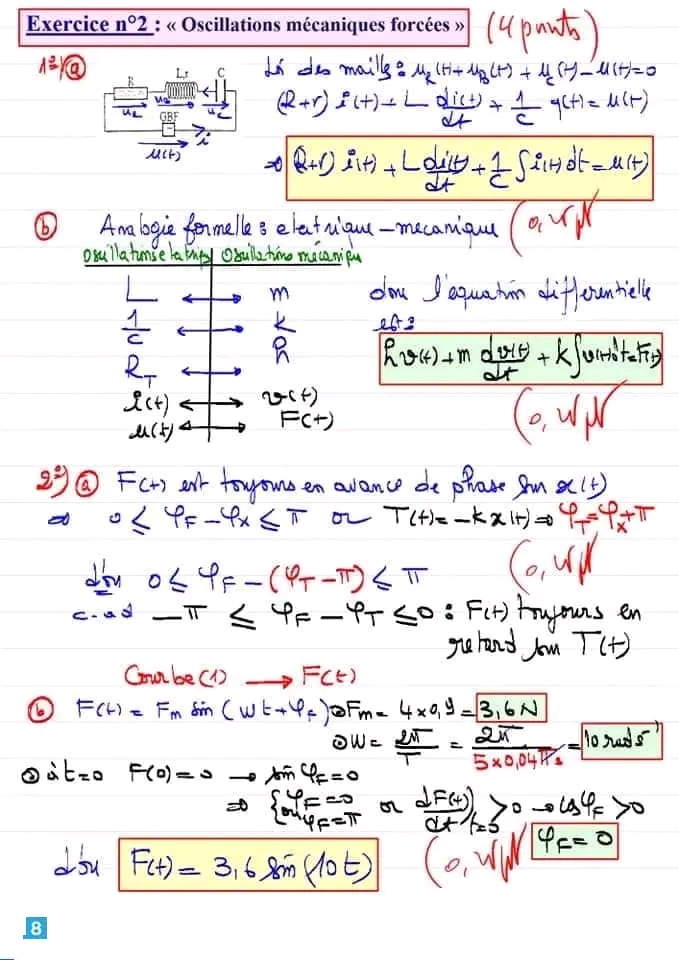 Exercice n°2 : « Oscillations mécaniques forcées » (4 points)
1°) a Loi des mailles : u_R(t) + u_B(t) + u_C(t) - u(t) = 0
R L,r C
u_R u_B u_C
GBF
u(t) i
(R+r) i(t) + L di(t)/dt + 1/C q(t) = u(t)
⇒ (R+r) i(t) + L di(t)/dt + 1/C ∫ i(t) dt = u(t)
b Analogie formelle : electrique - mecanique (0,
Oscillations Oscillations mécanique
L ↔ m donc l'equation differentielle
1/C ↔ k est :
R_T ↔ h h v(t) + m dv(t)/dt + k ∫ v(t) dt = F(t)
i(t) ↔ v(t)
u(t) ↔ F(t) (0,
2°) a F(t) est toujours en avance de phase sur x(t)
⇒ 0 ≤ φ_F - φ_x ≤ π or T(t) = -k x(t) ⇒ φ_T = φ_x + π
(0,
d'où 0 ≤ φ_F - (φ_T - π) ≤ π
c-a-d -π ≤ φ_F - φ_T ≤ 0 : F(t) toujours en
retard sur T(t)
Courbe (1) → F(t)
b F(t) = Fm sin(wt + φ_F) Fm = 4 x 0,9 = 3,6 N
w = 2π/T = 2π/(5 x 0,04π) = 10 rad s⁻¹
à t=0 F(0) = 0 → sin φ_F = 0
⇒ { φ_F = 0 ou φ_F = π or dF(t)/dt)_{t=0} > 0 → cos φ_F > 0
φ_F = 0
d'où F(t) = 3,6 sin(10t) (0,
8